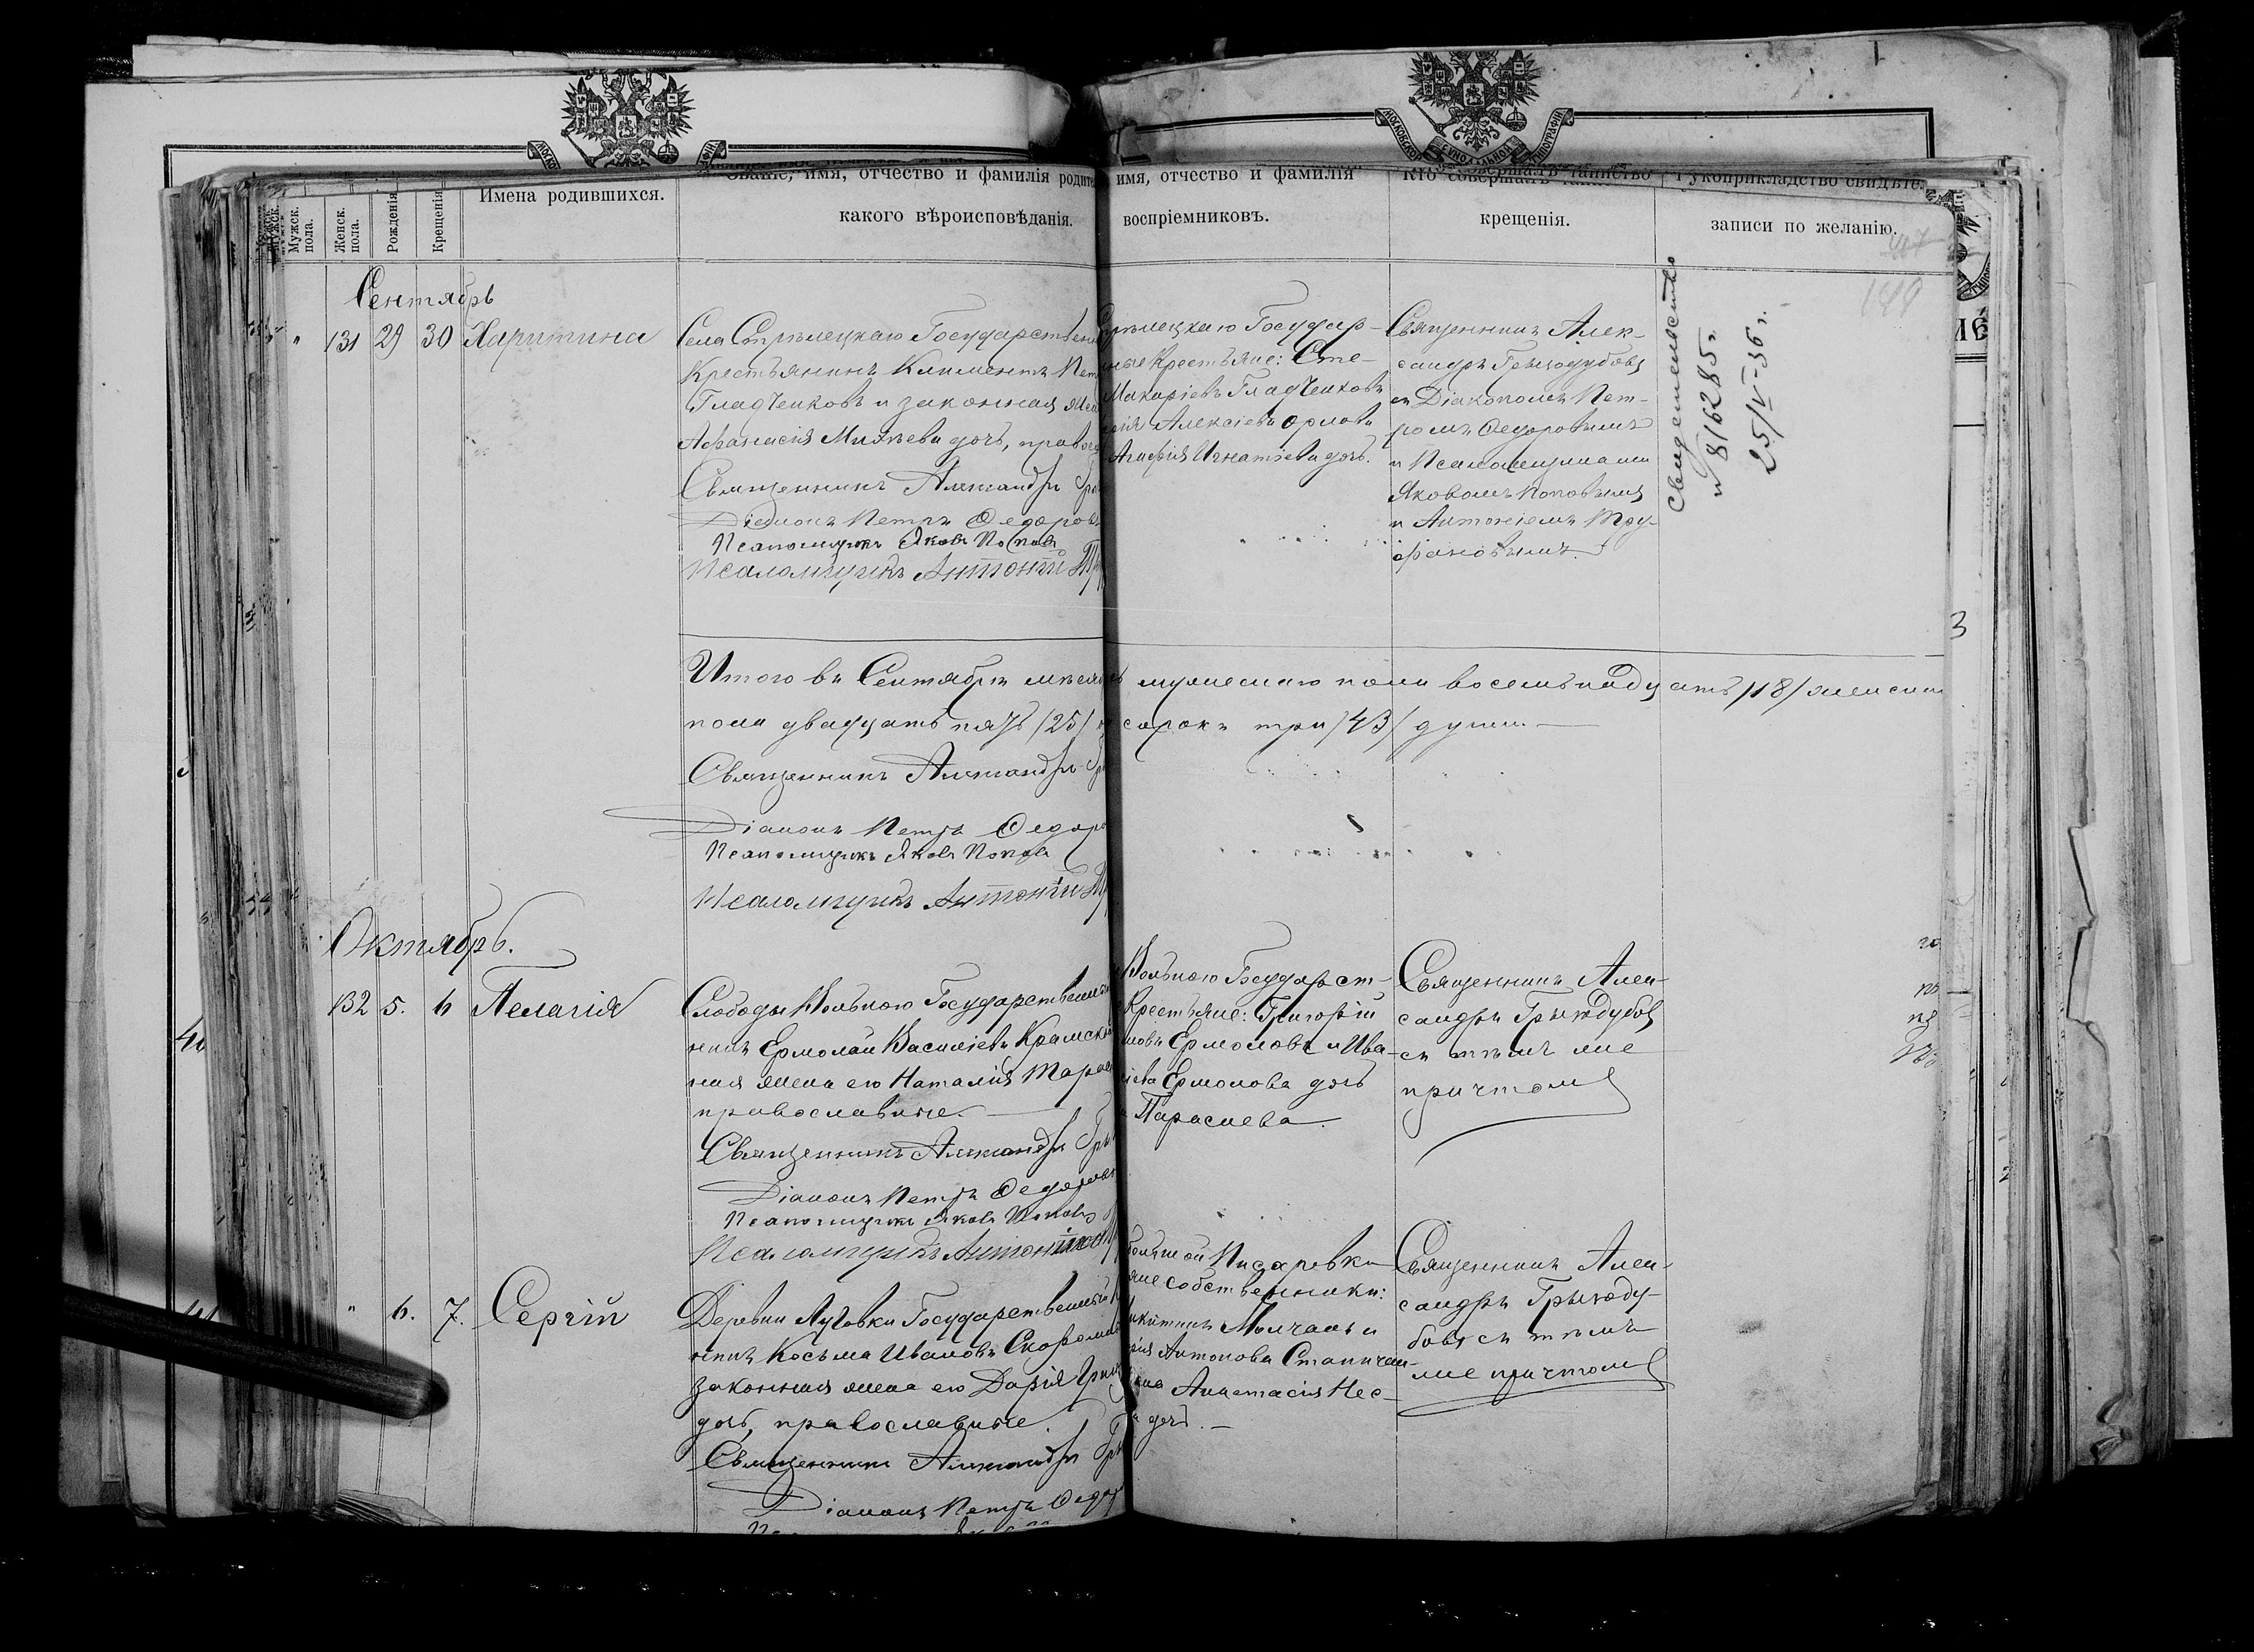 МОСКОВСКОЙ СУНОДАЛЬНОЙ ТИПОГРАФІИ
Мужск. пола.
Женск. пола.
Рожденія
Крещенія
Имена родившихся.
Званіе, имя, отчество и фамилія родите
какого вѣроисповѣданія.
имя, отчество и фамилія
воспріемниковъ.
Кто совершалъ таинство
крещенія.
Рукоприкладство свидѣте
записи по желанію.
Сентябрь
" 131 29 30 Харитина
Села Стрѣлецкаго Государствен
Крестьянинъ Климентъ Пет
Гладченковъ и законная жен
Афанасія Михѣева дочь, правос
Священникъ Александръ
Діаконъ Петръ Ѳедоровъ
Псаломщикъ Яковъ Поповъ
Псаломщикъ Антоній
Стрѣлецкаго Государ-
ные Крестьяне: Сте-
Макаріевъ Гладченковъ
Алексіева Орлова
Агафія Игнатіева дочь.
Священникъ Алек-
сандръ Грызодубовъ
съ Діакономъ Пет-
ромъ Ѳедоровымъ
и Псаломщиками
Яковомъ Поповымъ
и Антоніемъ Тру-
фановымъ.
Свидетельство
№ 816285
25/V-36 г.
Итого въ Сентябрѣ мѣсяцѣ мужескаго пола восемьнадцать /18/ женска
пола двадцать пять /25/ сорокъ три /43/ души.
Священникъ Александръ
Діаконъ Петръ Ѳедоро
Псаломщикъ Яковъ Поповъ
Псаломщикъ Антоній
Октябрь.
132 5. 6 Пелагія
Слободы Вольного Государственный
нинъ Ермолай Василіевъ Крамск
ная жена его Наталія Тарас
православные.
Священникъ Александръ
Діаконъ Петръ Ѳедоров
Псаломщикъ Яковъ Поповъ
Псаломщикъ Антоній
Вольного Государст-
Крестьяне: Григорій
новъ Ермоловъ и Ива-
Ермолова дочь
Тарасиева.
Священникъ Алек-
сандръ Грызодубов
съ тѣмъ же
причтомъ
" 6. 7. Сергій
Деревни Луговки Государственный
нинъ Косьма Ивановъ Скором
законная жена его Дарія
дочь, православные.
Священникъ Александръ
Діаконъ Петръ Ѳедор
Большой Писаревки
собственники:
Никитинъ Молчанъ и
Антонова Станичен-
Анастасія Нес-
дочь.
Священникъ Алек-
сандръ Грызоду-
бовъ съ тѣмъ
же причтомъ
3